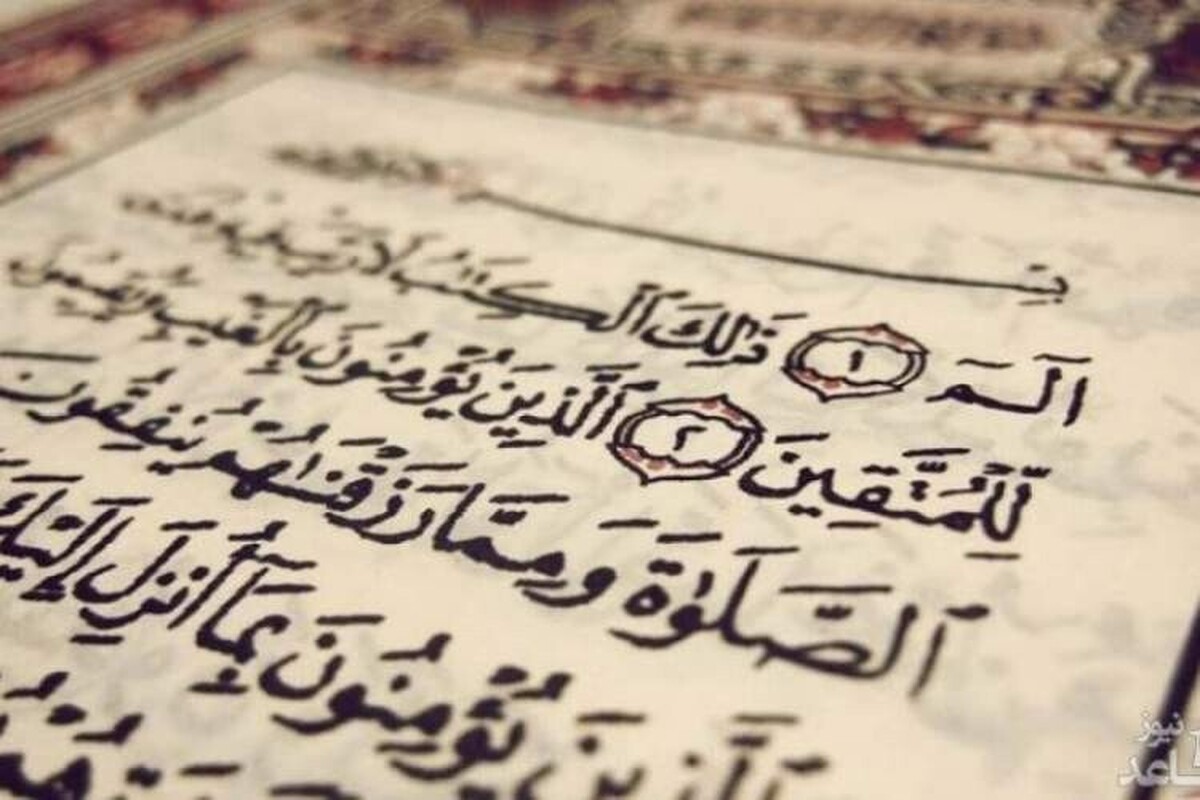 الٓمٓ ١ ذَٰلِكَ ٱلْكِتَٰبُ لَا رَيْبَ فِيهِ
لِّلْمُتَّقِينَ ٢ ٱلَّذِينَ يُؤْمِنُونَ بِٱلْغَيْبِ وَيُقِيمُونَ
ٱلصَّلَوٰةَ وَمِمَّا رَزَقْنَٰهُمْ يُنفِقُونَ
وَٱلَّذِينَ يُؤْمِنُونَ بِمَآ أُنزِلَ إِلَيْكَ
نیوز